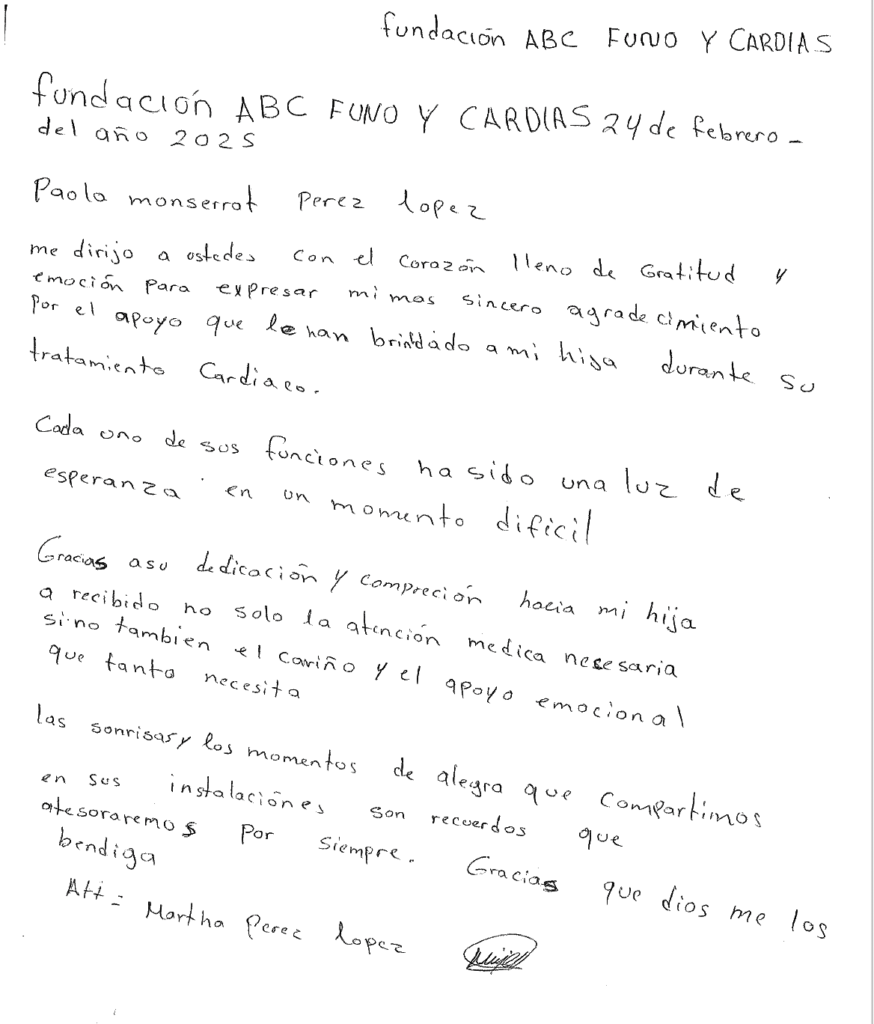 fundación ABC FUNO Y CARDIAS
fundación ABC FUNO Y CARDIAS 24 de febrero -
del año 2025
Paola monserrat Perez lopez
me dirijo a ostedes con el corazón lleno de Gratitud y
emoción para expresar mi mas sincero agradecimiento
Por el apoyo que le han brindado a mi hija durante su
tratamiento Cardiaco.
Cada uno de sus funciones ha sido una luz de
esperanza en un momento dificil
Gracias asu dedicación y compreción hacia mi hija
a recibido no solo la atención medica nesesaria
sino tambien el cariño y el apoyo emocional
que tanto necesita
las sonrisas y los momentos de alegra que compartimos
en sus instalaciónes son recuerdos que
atesoraremos por siempre. Gracias que dios me los
bendiga
Att = Martha Perez lopez